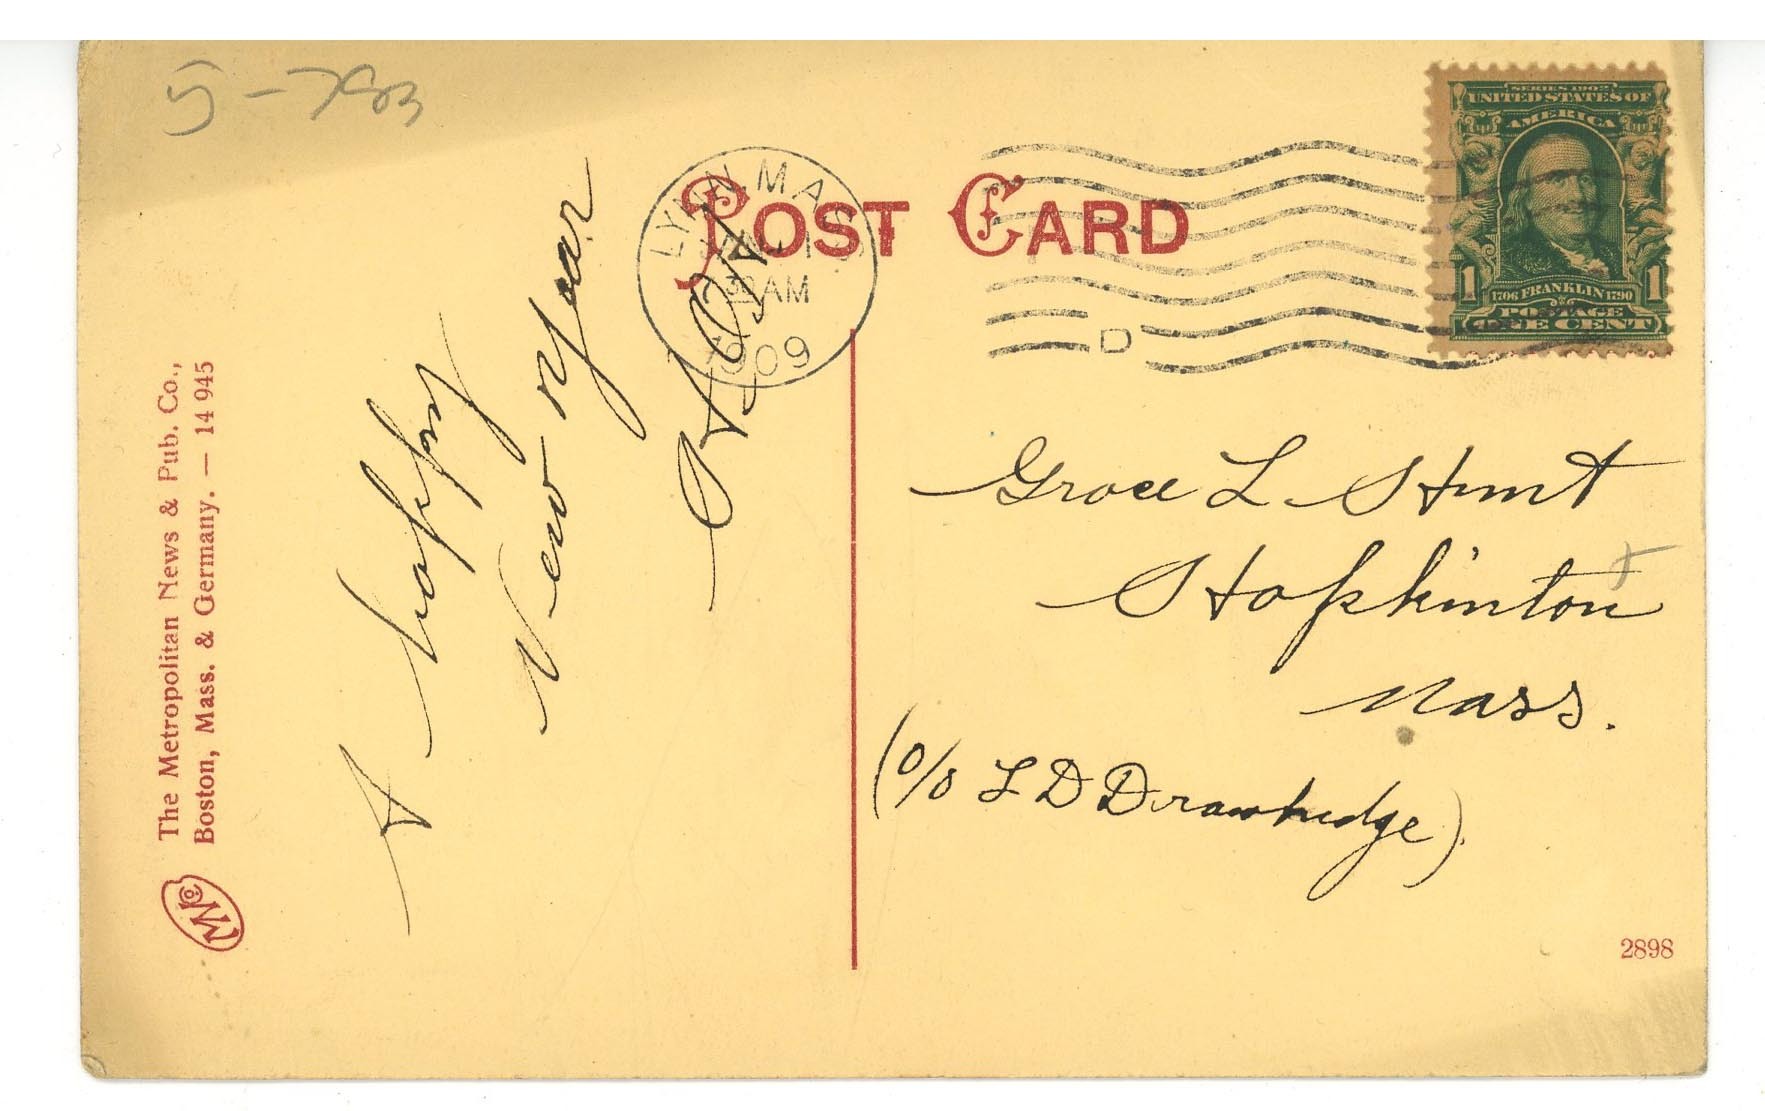 5-783
POST CARD
LYNN MASS
JAN 1
AM
1909
SERIES 1902
UNITED STATES OF
AMERICA
1 1706 FRANKLIN 1790 1
POSTAGE
ONE CENT
D
A happy
New Year
The Metropolitan News & Pub. Co.,
Boston, Mass. & Germany. — 14 945
MNCo
Grace L. Hunt
Hopkinton
Mass.
(c/o L D Drawbridge)
2898